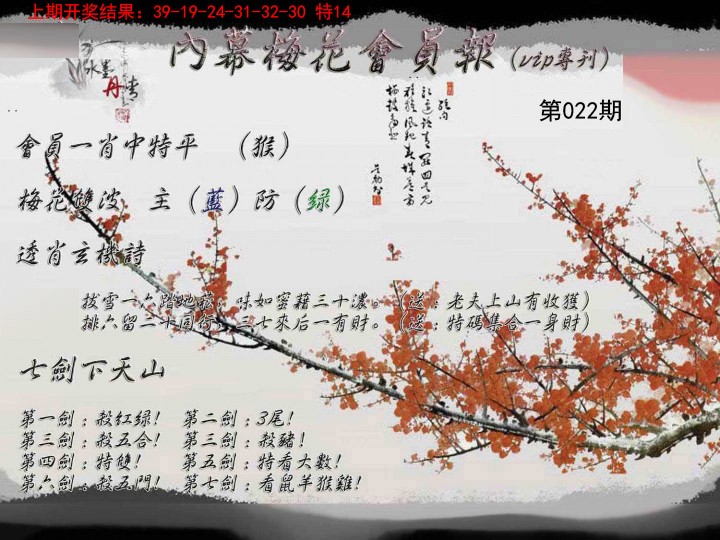 上期开奖结果：39-19-24-31-32-30 特14
內幕梅花會員報(vip專刊)
第022期
會員一肖中特平 （猴）
梅花雙波 主（藍）防（绿）
透肖玄機詩
拔雪一六踏地
味如蜜藉三十濃。（送：老夫上山有收獲）
排六留二十同行
三七來后一有財。（送：特碼集合一身財）
七劍下天山
第一劍：殺红绿! 第二劍：3尾!
第三劍：殺五合! 第三劍：殺豬!
第四劍：特雙! 第五劍：特看大數!
第六劍：殺五門! 第七劍：看鼠羊猴雞!